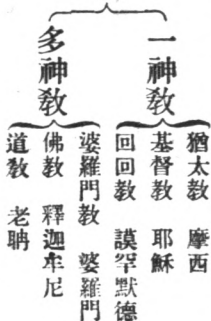 一神教
猶太教 摩西
基督教 耶穌
回回教 謨罕默德
多神教
婆羅門教 婆羅門
佛教 釋迦牟尼
道教 老聃